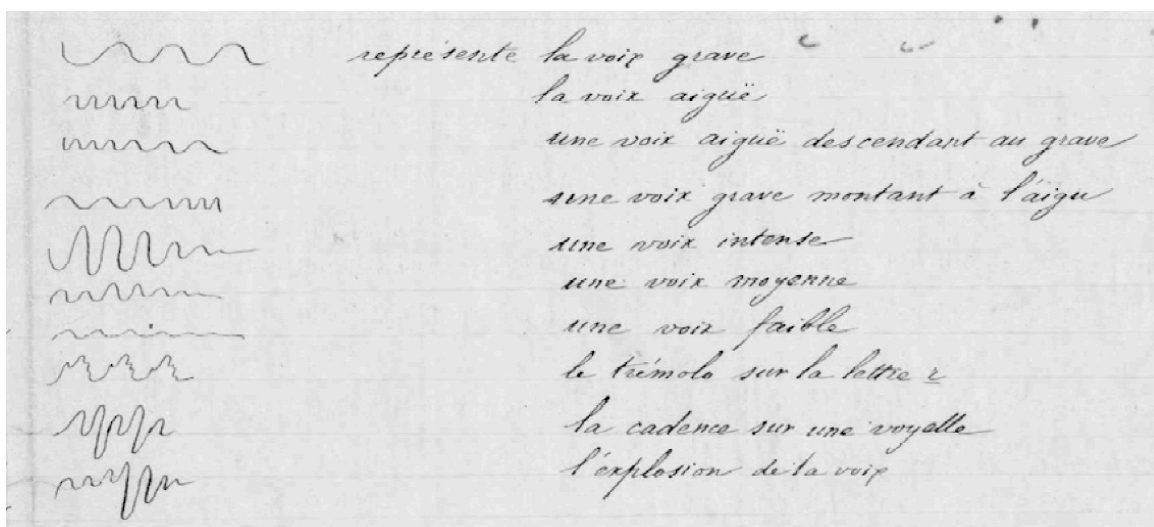 représente la voix grave
la voix aiguë
une voix aiguë descendant au grave
une voix grave montant à l'aigu
une voix intense
une voix moyenne
une voix faible
le trémolo sur la lettre r
la cadence sur une voyelle
l'explosion de la voix